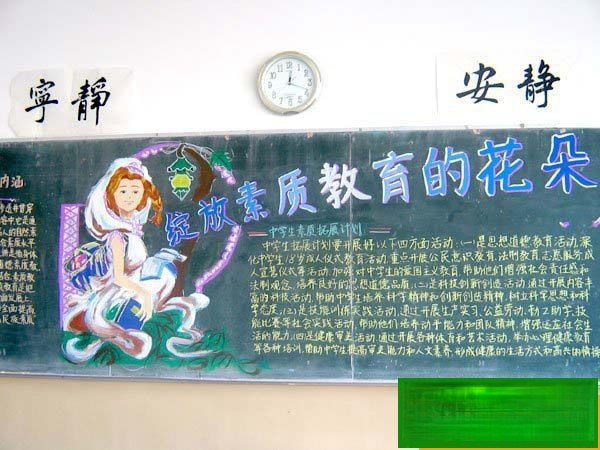 寧靜
安静
绽放素质教育的花朵
内涵
中学生素质拓展计划
中学生拓展计划要开展好以下四方面活动:(一)是思想道德教育活动,深
化中学生18岁成人仪式教育活动,重点开展公民意识教育,法制教育志愿服务成
人宣誓仪式等活动,加强对中学生的爱国主义教育,帮助他们增强社会责任感和
法制观念,培养良好的思想道德品质,(二)是科技创新创造活动,通过开展内容丰
富的科技活动,帮助中学生培养科学精神和创新创造精神,树立科学思想和科
学态度,(三)是技能训练实践活动,通过开展生产实习,公益劳动,勤工助学,技
能比赛等社会实践活动,帮助他们培养动手能力和团队精神,增强适应社会生
活的能力,(四)是健康审美活动,通过开展各种体育和艺术活动,举办心理健康教育
等各种培训,帮助中学生提高审美能力和人文素养,形成健康的生活方式和高